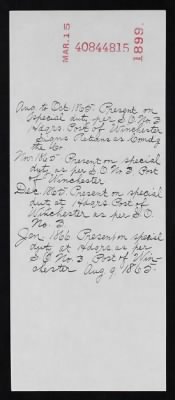 MAR. 15
40844815
1899.
Aug to Oct 1865. Present on
special duty per S.O. No. 3
Hdqrs. Post of Winchester
Signs Returns as Comdg
the Co.
Nov. 1865. Present on special
duty as per S.O. No. 3 Post
of Winchester
Dec 1865. Present on special
duty at Hdqrs Post of
Winchester as per S.O.
No. 3
Jan 1866 Present on special
duty at Hdqrs as per
S.O. No. 3. Post of Win-
chester Aug 9, 1865.